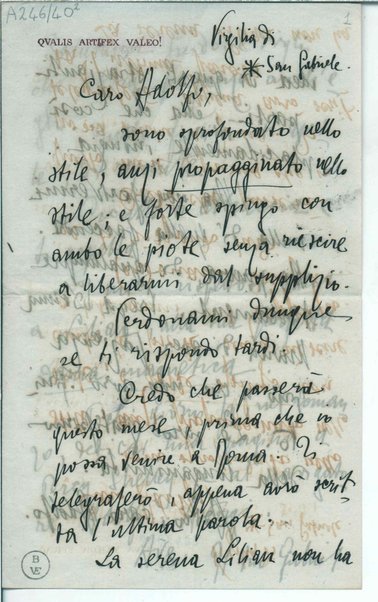 A246/40²
1
QVALIS ARTIFEX VALEO!
Vigilia di
San Gabriele.
Caro Adolfo,
sono sprofondato nello
stile, anzi propagginato nello
stile; e forte spingo con
ambo le piote senza riescire
a liberarmi dal supplizio.
Perdonami dunque
se ti rispondo tardi.
Credo che passerà
questo mese, prima che io
possa venire a Roma. Ti
telegraferò, appena avrò scrit-
ta l'ultima parola.
La serena Lilian non ha
B
VE